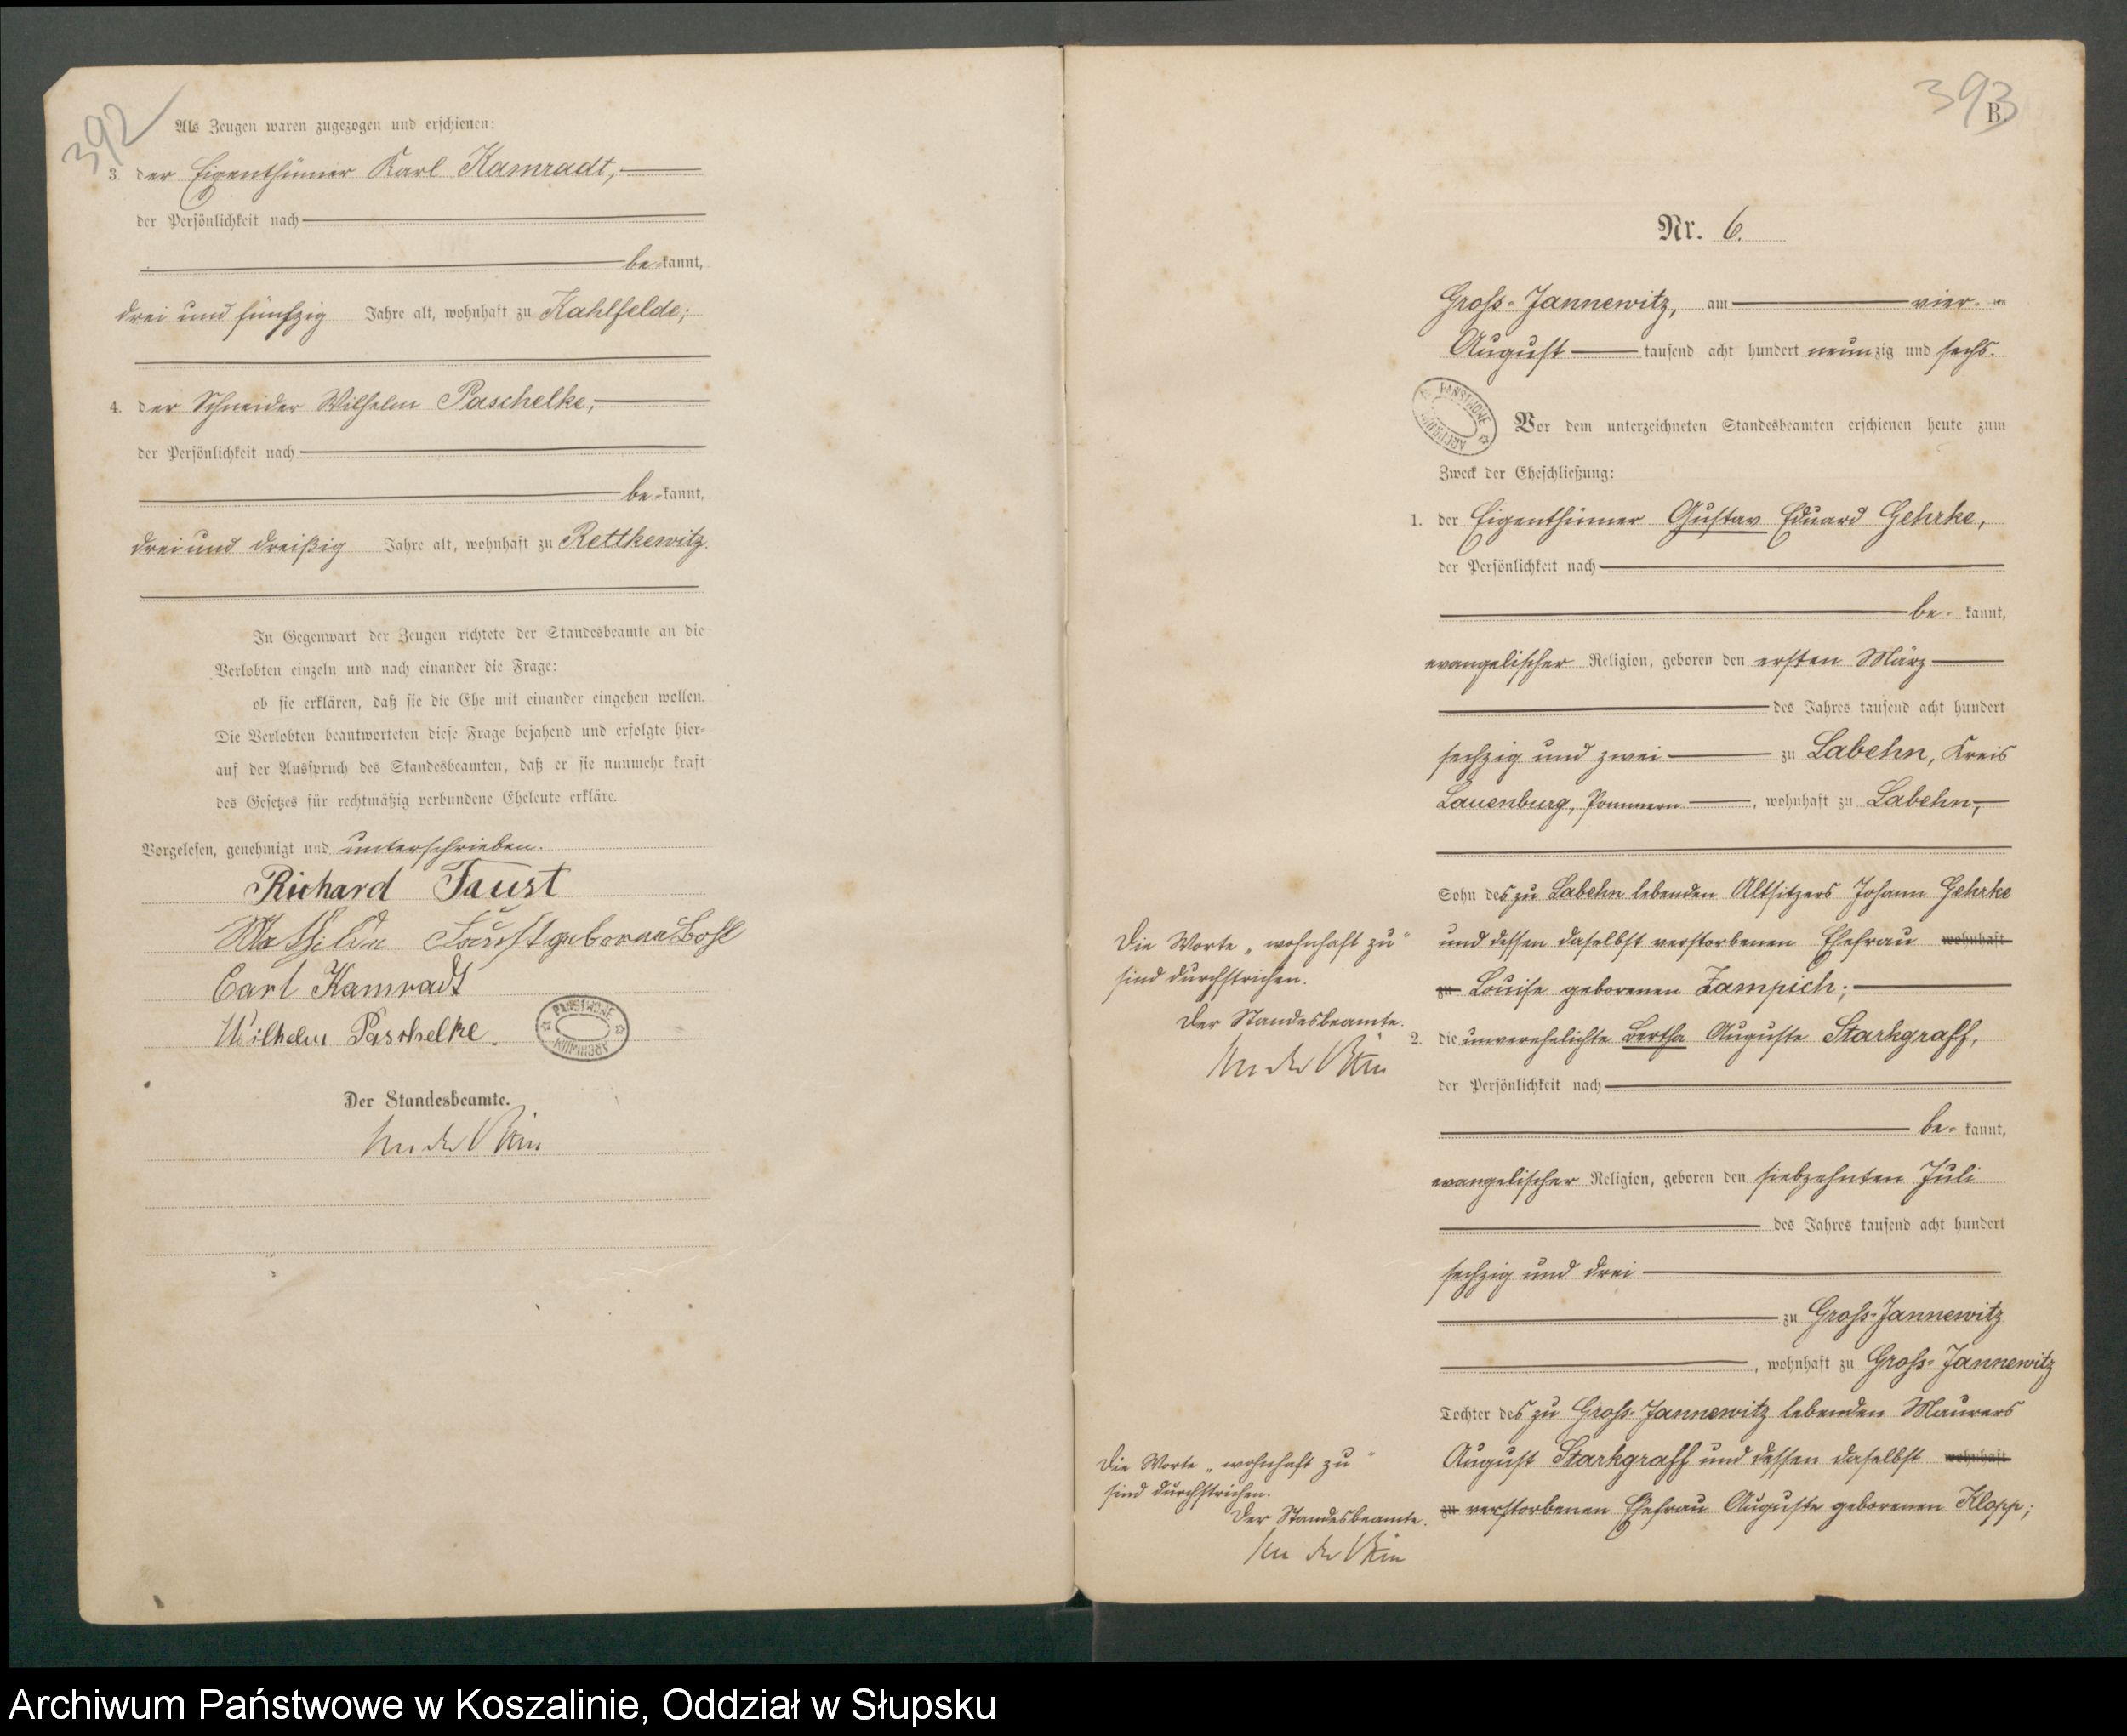 392
Als Zeugen waren zugezogen und erschienen:
3. der Eigenthümer Karl Kamradt,
der Persönlichkeit nach
be kannt,
drei und fünfzig Jahre alt, wohnhaft zu Kahlfelde;
4. der Schneider Wilhelm Paschelke,
der Persönlichkeit nach
be kannt,
drei und dreißig Jahre alt, wohnhaft zu Rettkewitz.
In Gegenwart der Zeugen richtete der Standesbeamte an die
Verlobten einzeln und nach einander die Frage:
ob sie erklären, daß sie die Ehe mit einander eingehen wollen.
Die Verlobten beantworteten diese Frage bejahend und erfolgte hier-
auf der Ausspruch des Standesbeamten, daß er sie nunmehr kraft
des Gesetzes für rechtmäßig verbundene Eheleute erkläre.
Vorgelesen, genehmigt und unterschrieben.
Richard Faust
Mathilde Faust geborene
Carl Kamradt
Wilhelm Paschelke.
Der Standesbeamte.
393
B.
Nr. 6.
Groß-Jannewitz, am vier ten
August tausend acht hundert neunzig und sechs.
Vor dem unterzeichneten Standesbeamten erschienen heute zum
Zweck der Eheschließung:
1. der Eigenthümer Gustav Eduard Gehrke,
der Persönlichkeit nach
be kannt,
evangelischer Religion, geboren den ersten März
des Jahres tausend acht hundert
sechzig und zwei zu Labehn, Kreis
Lauenburg, Pommern, wohnhaft zu Labehn,
Sohn des zu Labehn lebenden Altsitzers Johann Gehrke
und dessen daselbst verstorbenen Ehefrau wohnhaft
zu Louise geborenen Zampich;
Die Worte „wohnhaft zu“
sind durchstrichen.
Der Standesbeamte.
2. die unverehelichte Bertha Auguste Starkgraff,
der Persönlichkeit nach
be kannt,
evangelischer Religion, geboren den siebzehnten Juli
des Jahres tausend acht hundert
sechzig und drei
zu Groß-Jannewitz
, wohnhaft zu Groß-Jannewitz
Tochter des zu Groß-Jannewitz lebenden Maurers
August Starkgraff und dessen daselbst wohnhaft
zu verstorbenen Ehefrau Auguste geborenen Klopp;
Die Worte „wohnhaft zu“
sind durchstrichen.
Der Standesbeamte.
Archiwum Państwowe w Koszalinie, Oddział w Słupsku